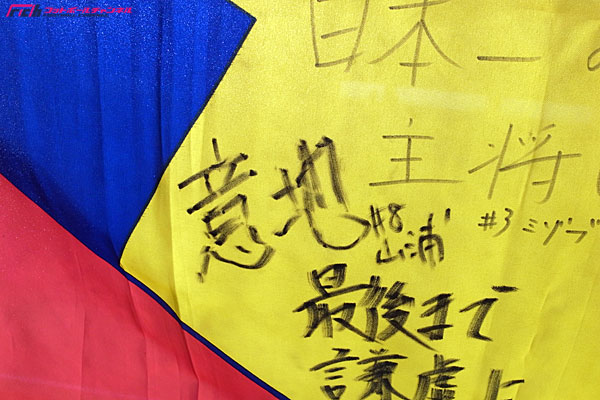 フットボールチャンネル
日本一の
主将
#3 ミゾブ
意地
#8
山浦
最後まで
謙虚に